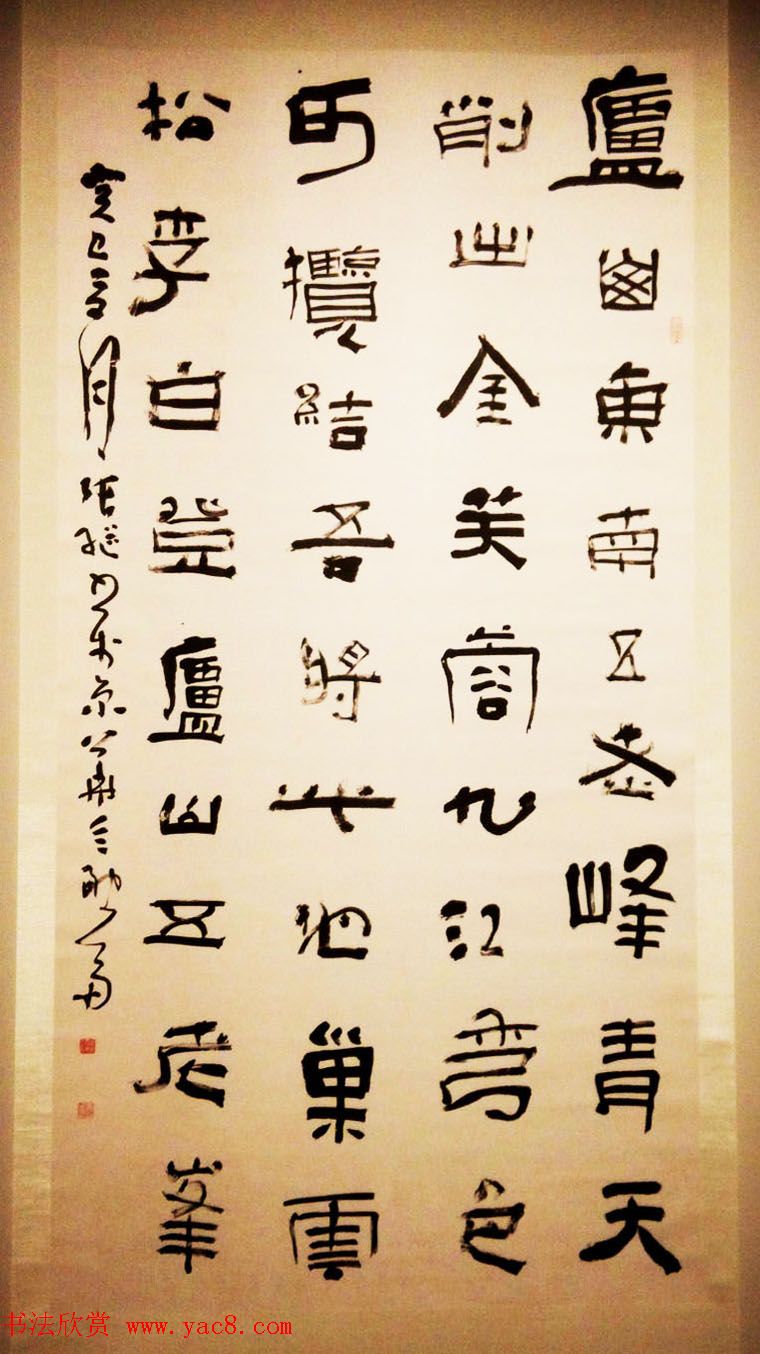 廬山東南五老峰青天
削出金芙蓉九江秀色
可攬結吾將此地巢雲
松李白登廬山五老峯
癸巳月張繼書於京
书法欣赏 www.yac8.com